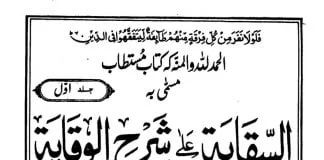 فلولا نفر من كل فرقة منهم طائفة ليتفقهوا فى الدين
الحمد لله والمنه كه كتاب مستطاب
مسمى به
جلد اوّل
السقاية على شرح الوقاية